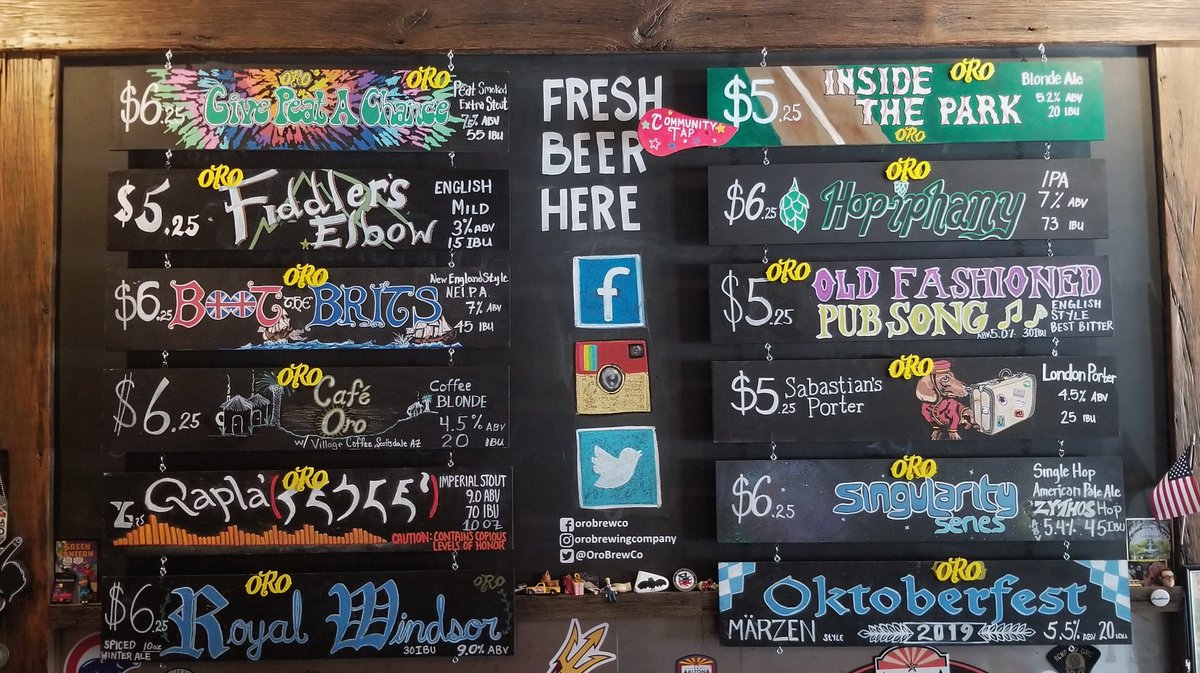 $6.25
ORO
ORO
Give Peat A Chance
Peat Smoked
Extra Stout
7.5% ABV
55 IBU
$5.25
ORO
Fiddler's
Elbow
ENGLISH
MILD
3% ABV
15 IBU
$6.25
ORO
BOOT the BRITS
New England Style
N.E.I.P.A.
7% ABV
45 IBU
$6.25
ORO
Café
Oro
w/ Village Coffee, Scottsdale AZ
Coffee
BLONDE
4.5% ABV
20 IBU
ORO
Qapla'
IMPERIAL STOUT
9.0 ABV
70 IBU
10 OZ
CAUTION: CONTAINS COPIOUS
LEVELS OF HONOR
$6.25
ORO
ORO
Royal Windsor
SPICED 10oz
WINTER ALE
30 IBU 9.0% ABV
FRESH
BEER
HERE
COMMUNITY
TAP
f
orobrewco
orobrewingcompany
@OroBrewCo
$5.25
INSIDE
THE PARK
ORO
ORO
Blonde Ale
5.2% ABV
20 IBU
$6.25
ORO
Hopiphany
IPA
7% ABV
73 IBU
$5.25
ORO
OLD FASHIONED
PUB SONG
ABV 5.0% 30 IBU
ENGLISH
STYLE
BEST BITTER
$5.25
Sabastian's
Porter
ORO
London Porter
4.5% ABV
25 IBU
$6.25
ORO
Singularity
series
Single Hop
American Pale Ale
ZYTHOS Hop
5.4% 45 IBU
ORO
Oktoberfest
MÄRZEN STYLE
2019
5.5% ABV 20
GREEN
LANTERN
ARIZONA